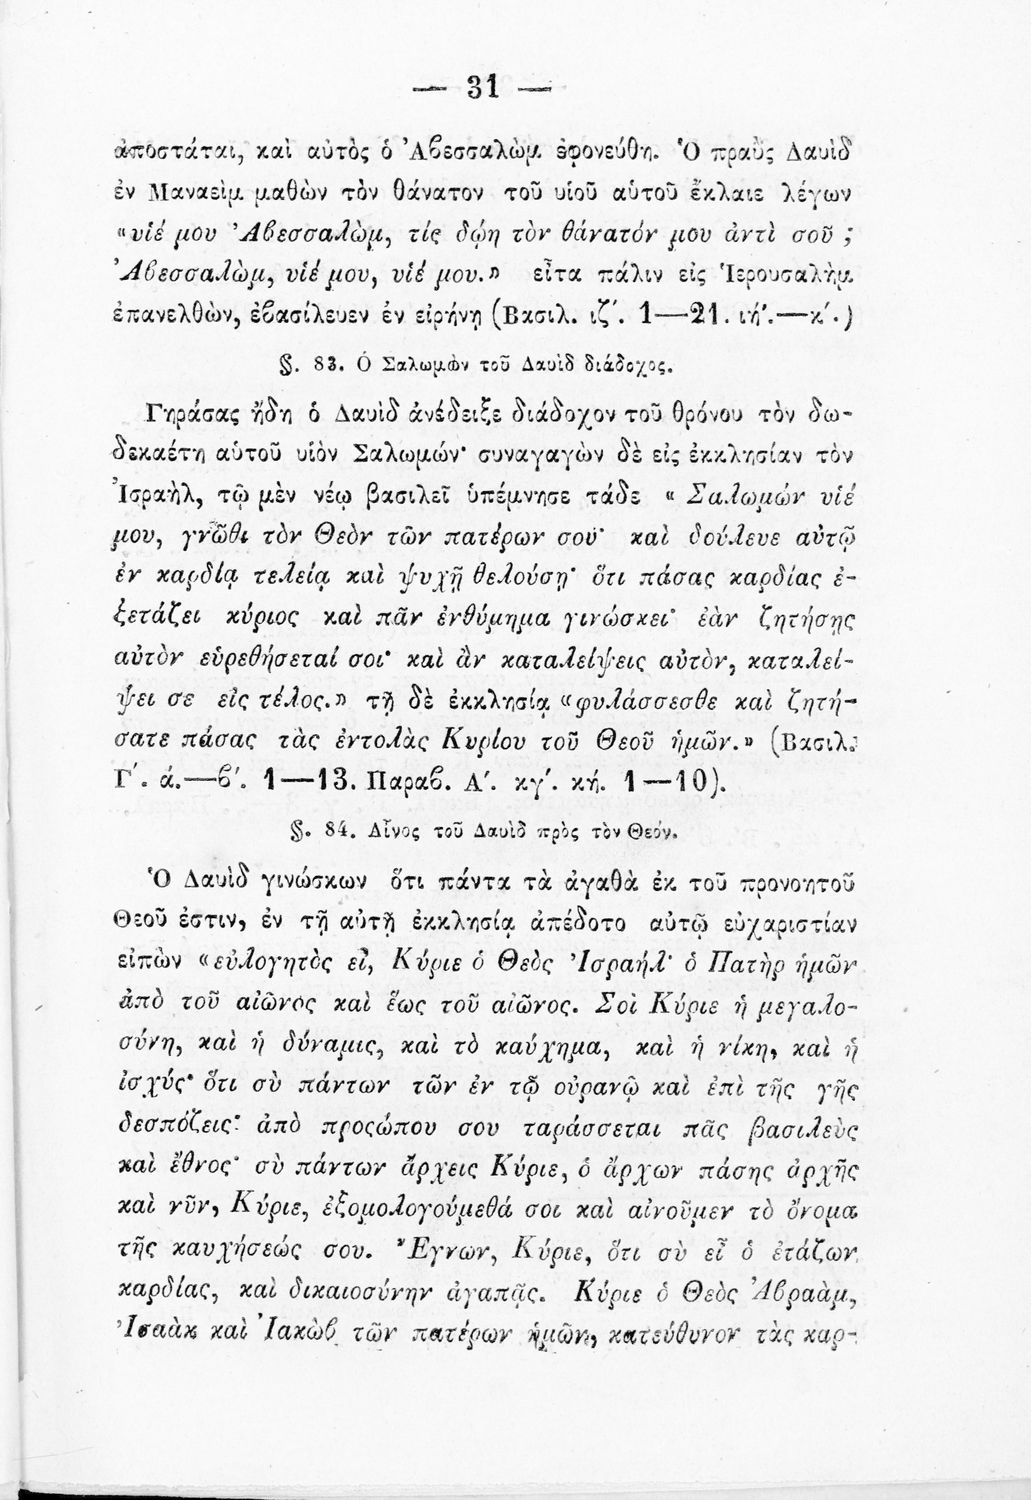 — 31 —
ἀποστάται, καὶ αὐτὸς ὁ Ἀβεσσαλὼμ ἐφονεύθη. Ὁ πραῢς Δαυὶδ
ἐν Μαναεὶμ μαθὼν τὸν θάνατον τοῦ υἱοῦ αὑτοῦ ἔκλαιε λέγων
«υἱέ μου Ἀβεσσαλὼμ, τίς δῴη τὸν θάνατόν μου ἀντὶ σοῦ ;
Ἀβεσσαλὼμ, υἱέ μου, υἱέ μου.» εἶτα πάλιν εἰς Ἱερουσαλὴμ
ἐπανελθὼν, ἐβασίλευεν ἐν εἰρήνῃ (Βασιλ. ιζ΄. 1—21. ιή.—κ΄.)
§. 83. Ὁ Σαλωμὼν τοῦ Δαυὶδ διάδοχος.
Γηράσας ἤδη ὁ Δαυὶδ ἀνέδειξε διάδοχον τοῦ θρόνου τὸν δω-
δεκαέτη αὑτοῦ υἱὸν Σαλωμών· συναγαγὼν δὲ εἰς ἐκκλησίαν τὸν
Ἰσραὴλ, τῷ μὲν νέῳ βασιλεῖ ὑπέμνησε τάδε « Σαλωμών υἱέ
μου, γνῶθι τὸν Θεὸν τῶν πατέρων σου· καὶ δούλευε αὐτῷ
ἐν καρδίᾳ τελείᾳ καὶ ψυχῇ θελούσῃ· ὅτι πάσας καρδίας ἐ-
ξετάζει κύριος καὶ πᾶν ἐνθύμημα γινώσκει· ἐὰν ζητήσῃς
αὐτὸν εὑρεθήσεταί σοι· καὶ ἂν καταλείψεις αὐτὸν, καταλεί-
ψει σε εἰς τέλος.» τῇ δὲ ἐκκλησίᾳ «φυλάσσεσθε καὶ ζητή-
σατε πάσας τὰς ἐντολὰς Κυρίου τοῦ Θεοῦ ἡμῶν.» (Βασιλ.
Γ΄. ά.—β΄. 1—13. Παραβ. Α΄. κγ΄. κή. 1—10).
§. 84. Αἶνος τοῦ Δαυὶδ πρὸς τὸν Θεόν.
Ὁ Δαυὶδ γινώσκων ὅτι πάντα τὰ ἀγαθὰ ἐκ τοῦ προνοητοῦ
Θεοῦ ἐστιν, ἐν τῇ αὐτῇ ἐκκλησίᾳ ἀπέδοτο αὐτῷ εὐχαριστίαν
εἰπὼν «εὐλογητὸς εἶ, Κύριε ὁ Θεὸς Ἰσραήλ· ὁ Πατὴρ ἡμῶν
ἀπὸ τοῦ αἰῶνος καὶ ἕως τοῦ αἰῶνος. Σοὶ Κύριε ἡ μεγαλο-
σύνη, καὶ ἡ δύναμις, καὶ τὸ καύχημα, καὶ ἡ νίκη, καὶ ἡ
ἰσχύς· ὅτι σὺ πάντων τῶν ἐν τῷ οὐρανῷ καὶ ἐπὶ τῆς γῆς
δεσπόζεις· ἀπὸ προςώπου σου ταράσσεται πᾶς βασιλεὺς
καὶ ἔθνος· σὺ πάντων ἄρχεις Κύριε, ὁ ἄρχων πάσης ἀρχῆς
καὶ νῦν, Κύριε, ἐξομολογούμεθά σοι καὶ αἰνοῦμεν τὸ ὄνομα
τῆς καυχήσεώς σου. Ἔγνων, Κύριε, ὅτι σὺ εἶ ὁ ἐτάζων
καρδίας, καὶ δικαιοσύνην ἀγαπᾷς. Κύριε ὁ Θεὸς Ἀβραὰμ,
Ἰσαὰκ καὶ Ἰακὼβ τῶν πατέρων ἡμῶν, κατεύθυνον τὰς καρ-